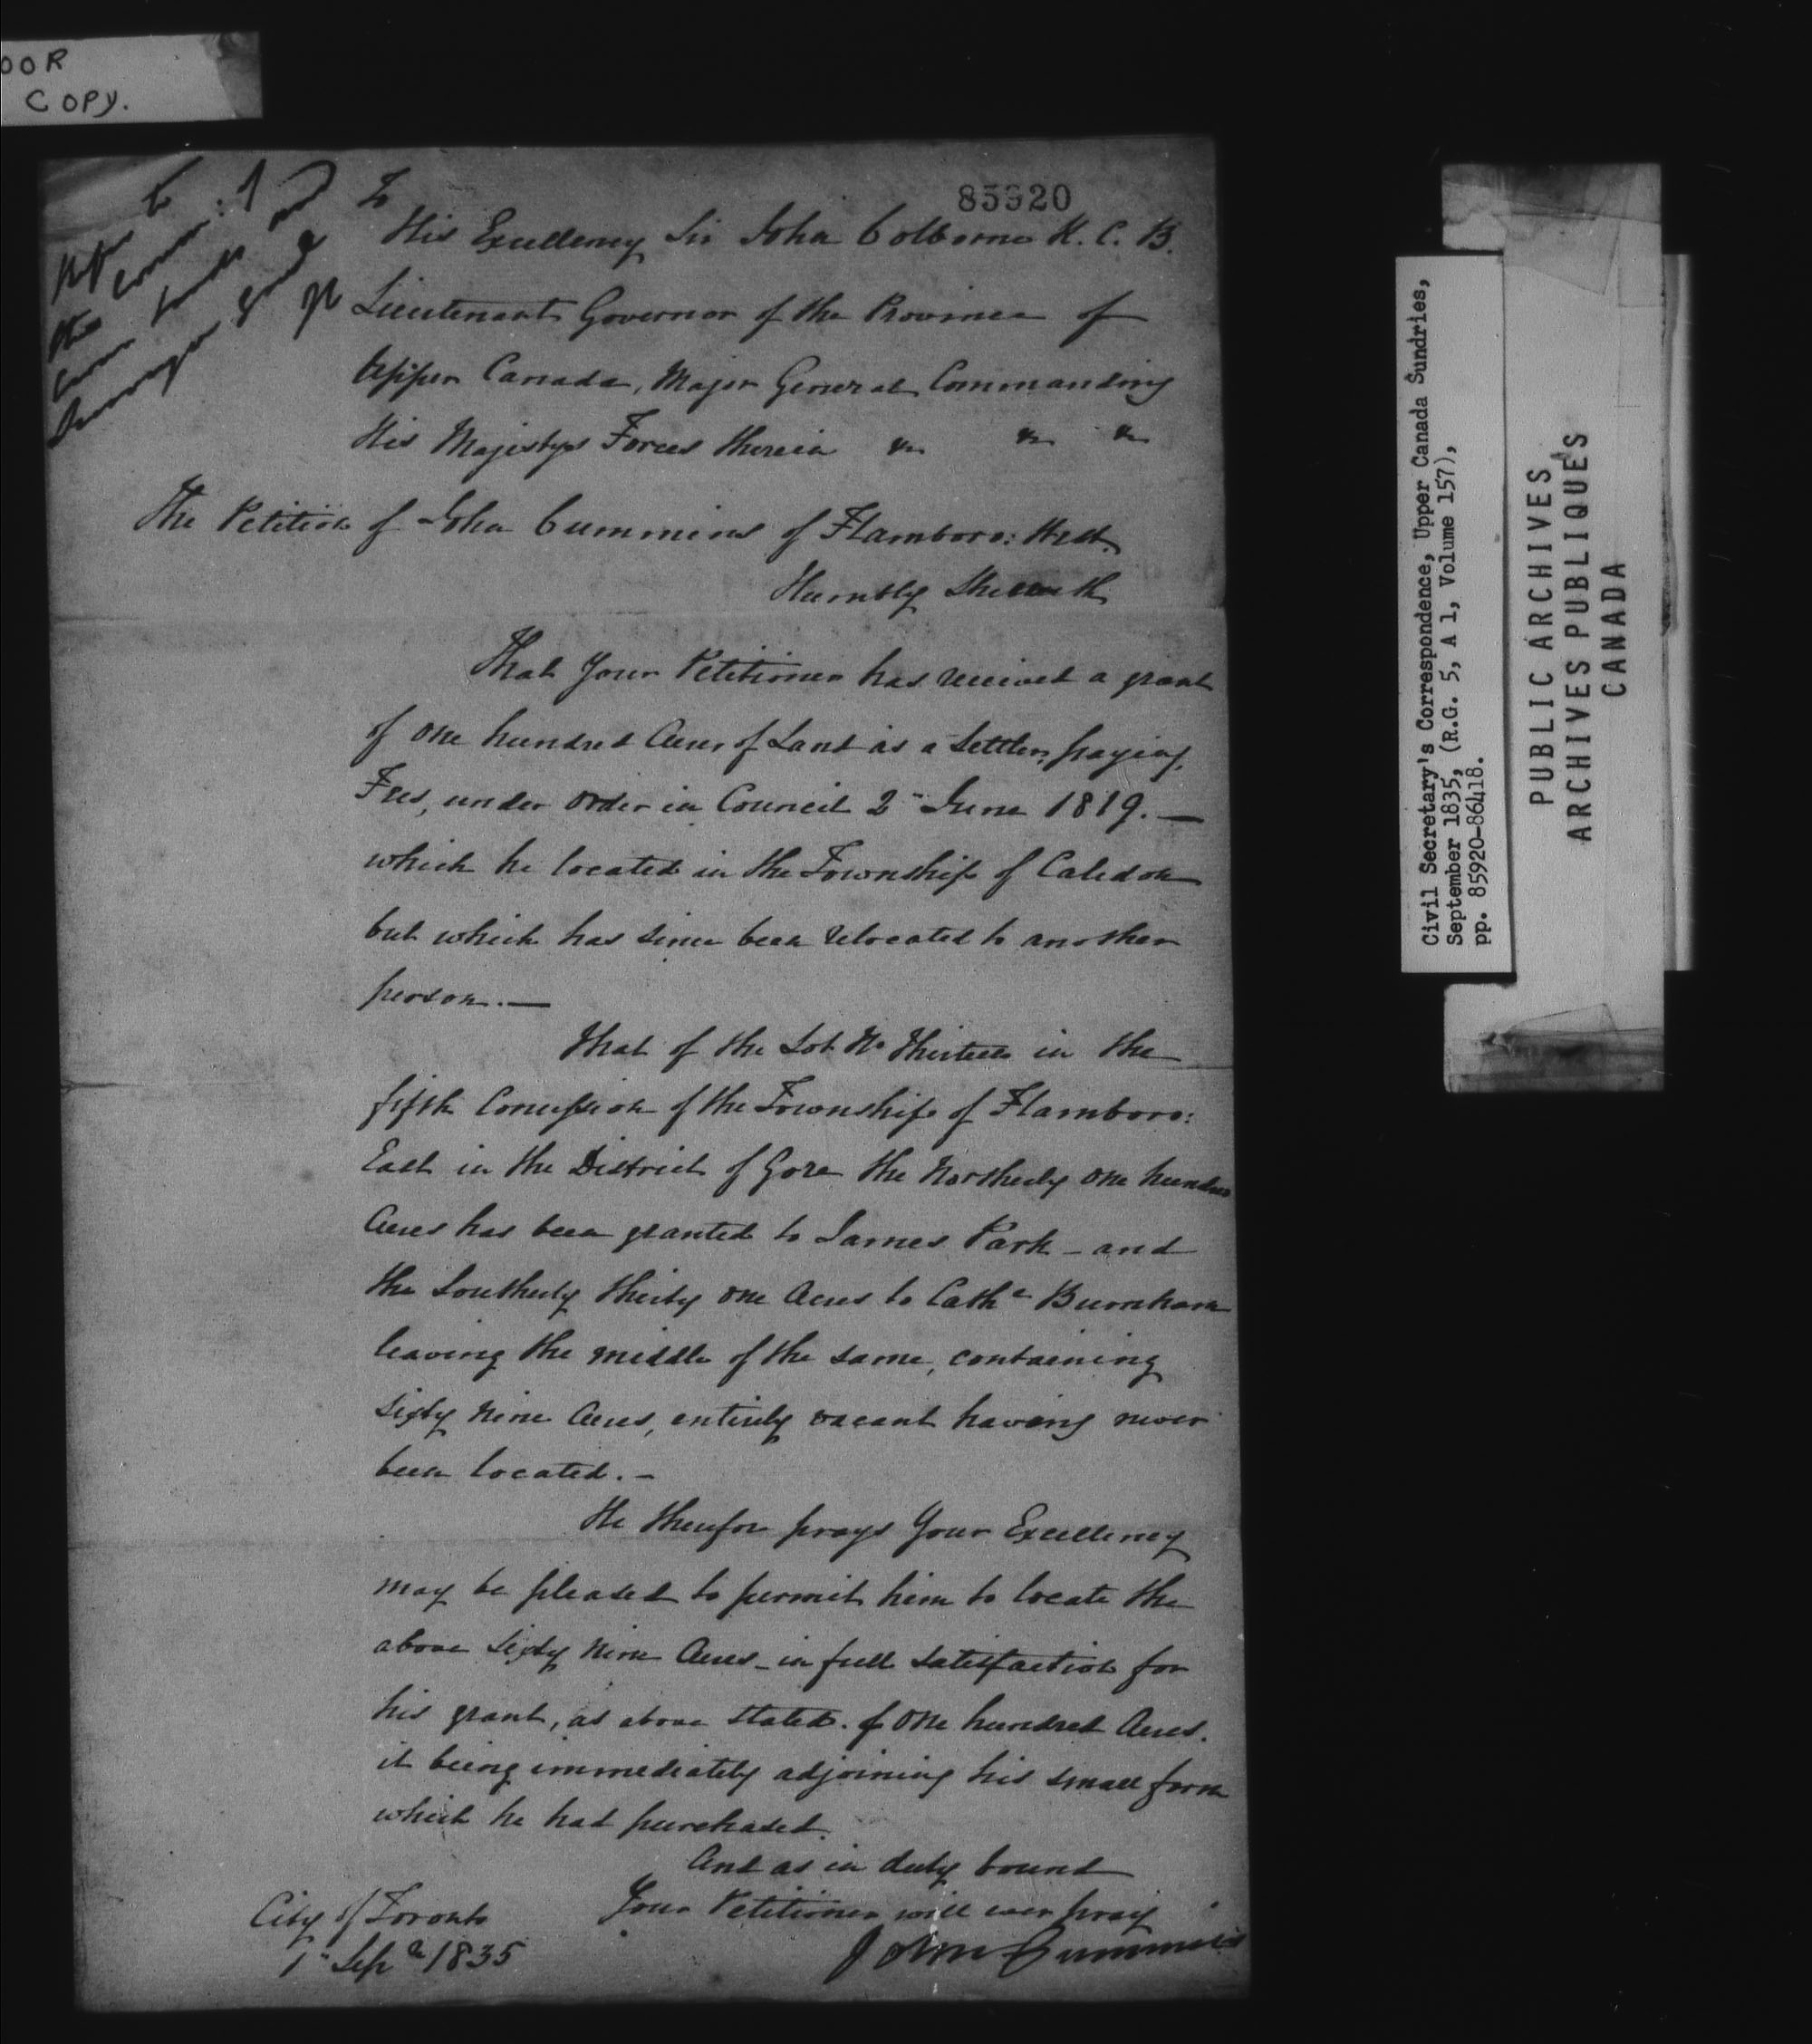 OOR
COPY.
85920
Refer to
the Comr. of
Crown Lands and
Surveyor General
To
His Excellency Sir John Colborne K. C. B.
Lieutenant Governor of the Province of
Upper Canada, Major General Commanding
His Majestys Forces therein &c &c &c
The Petition of John Cummins of Flamboro: West.
Humbly Sheweth
That Your Petitioner has received a grant
of one hundred Acres of Land as a Settler, paying
Fees, under order in Council 2d June 1819. —
which he located in the Township of Caledon
but which has since been relocated to another
person. —
That of the Lot No Thirteen in the
fifth Concession of the Township of Flamboro:
East in the District of Gore the Northerly one hundred
Acres has been granted to James Park - and
the Southerly thirty one Acres to Cathe Burnham
leaving the middle of the same, containing
sixty nine Acres, entirely vacant having never
been located. -
He therefore prays Your Excellency
may be pleased to permit him to locate the
above sixty nine Acres - in full satisfaction for
his grant, as above stated. of One hundred Acres.
it being immediately adjoining his small farm
which he had purchased.
And as in duty bound
Your Petitioner will ever pray
John Cummins
City of Toronto
1st Sepr 1835
Civil Secretary's Correspondence, Upper Canada Sundries,
September 1835, (R.G. 5, A 1, Volume 157),
pp. 85920-86418.
PUBLIC ARCHIVES
ARCHIVES PUBLIQUES
CANADA